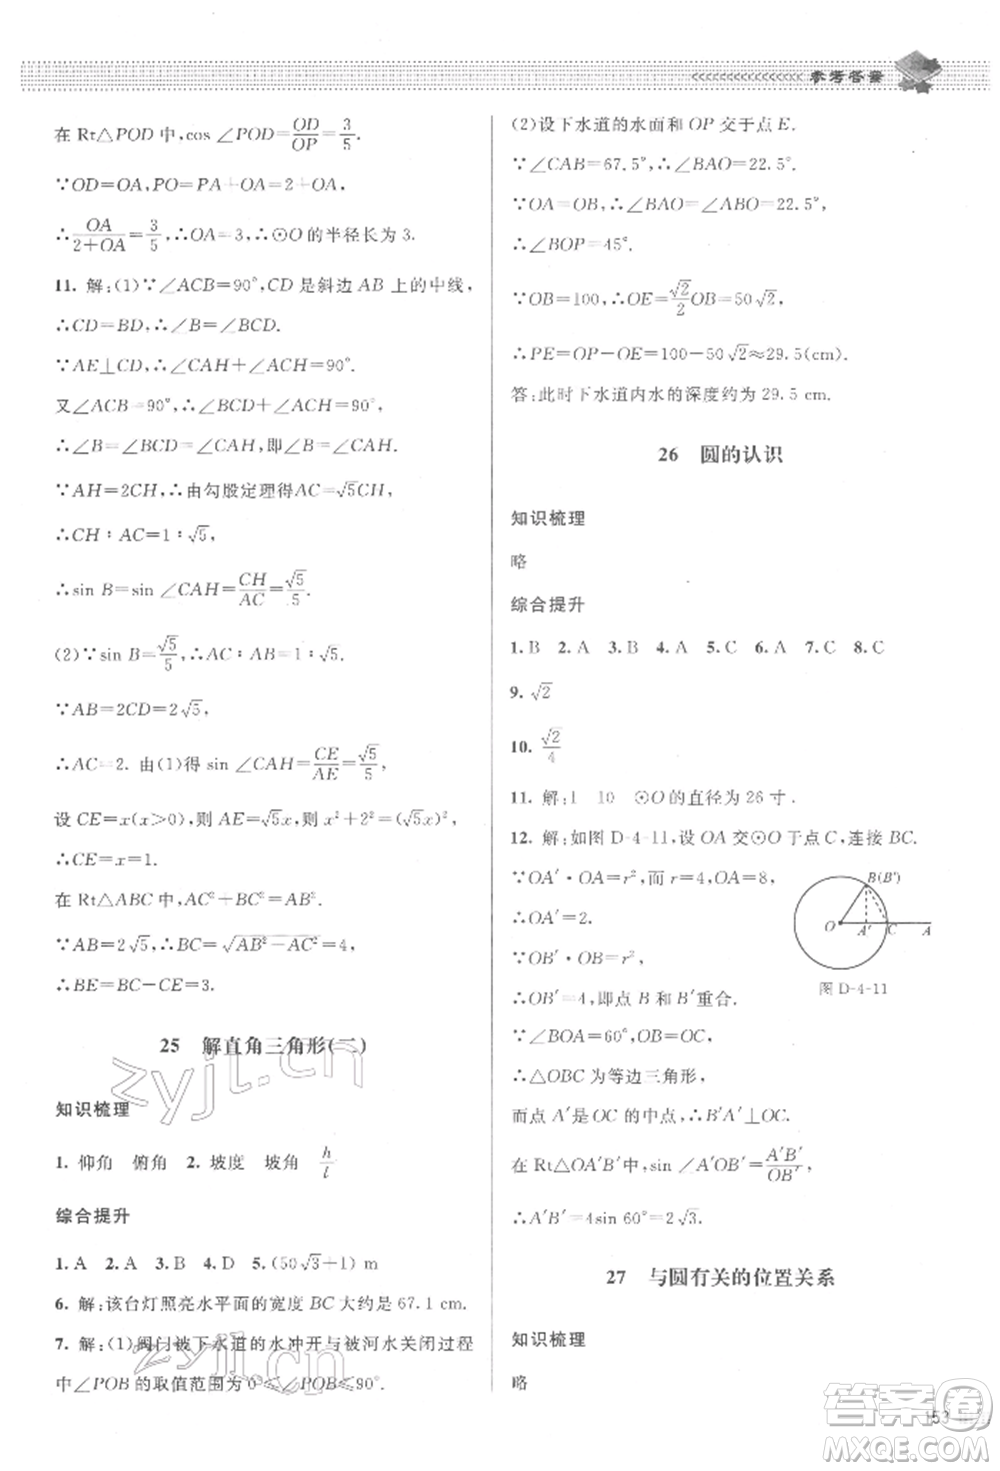 参考答案
在 Rt△POD 中,cos ∠POD=OD/OP=3/5.
∵OD=OA,PO=PA+OA=2+OA,
∴OA/(2+OA)=3/5,∴OA=3,∴⊙O 的半径长为 3.
11. 解:(1)∵∠ACB=90°,CD 是斜边 AB 上的中线,
∴CD=BD,∴∠B=∠BCD.
∵AE⊥CD,∴∠CAH+∠ACH=90°.
又∠ACB=90°,∴∠BCD+∠ACH=90°,
∴∠B=∠BCD=∠CAH,即∠B=∠CAH.
∵AH=2CH,∴由勾股定理得AC=√5CH,
∴CH∶AC=1∶√5,
∴sin B=sin ∠CAH=CH/AC=√5/5.
(2)∵sin B=√5/5,∴AC∶AB=1∶√5.
∵AB=2CD=2√5,
∴AC=2. 由(1)得 sin ∠CAH=CE/AE=√5/5,
设 CE=x(x>0),则 AE=√5x,则 x²+2²=(√5x)²,
∴CE=x=1.
在 Rt△ABC 中,AC²+BC²=AB².
∵AB=2√5,∴BC=√(AB²-AC²)=4,
∴BE=BC-CE=3.
25 解直角三角形(二)
知识梳理
1. 仰角 俯角 2. 坡度 坡角 h/l
综合提升
1. A 2. A 3. B 4. D 5. (50√3+1) m
6. 解:该台灯照亮水平面的宽度 BC 大约是 67.1 cm.
7. 解:(1)阀门被下水道的水冲开与被河水关闭过程
中∠POB 的取值范围为 0°≤∠POB≤90°.
(2)设下水道的水面和 OP 交于点 E.
∵∠CAB=67.5°,∴∠BAO=22.5°,
∵OA=OB,∴∠BAO=∠ABO=22.5°,
∴∠BOP=45°.
∵OB=100,∴OE=√2/2OB=50√2,
∴PE=OP-OE=100-50√2≈29.5(cm).
答:此时下水道内水的深度约为 29.5 cm.
26 圆的认识
知识梳理
略
综合提升
1. B 2. A 3. B 4. A 5. C 6. A 7. C 8. C
9. √2
10. √2/4
11. 解:1 10 ⊙O 的直径为 26 寸.
12. 解:如图 D-4-11,设 OA 交⊙O 于点 C,连接 BC.
∵OA′·OA=r²,而 r=4,OA=8,
∴OA′=2.
∵OB′·OB=r²,
∴OB′=4,即点 B 和 B′重合.
∵∠BOA=60°,OB=OC,
∴△OBC 为等边三角形,
而点 A′是 OC 的中点,∴B′A′⊥OC.
在 Rt△OA′B′中,sin ∠A′OB′=A′B′/OB′,
∴A′B′=4sin 60°=2√3.
B(B′)
O A′ C A
图 D-4-11
27 与圆有关的位置关系
知识梳理
略
153
zyjl.cn
zyjl.cn
答案圈
MXQE.COM